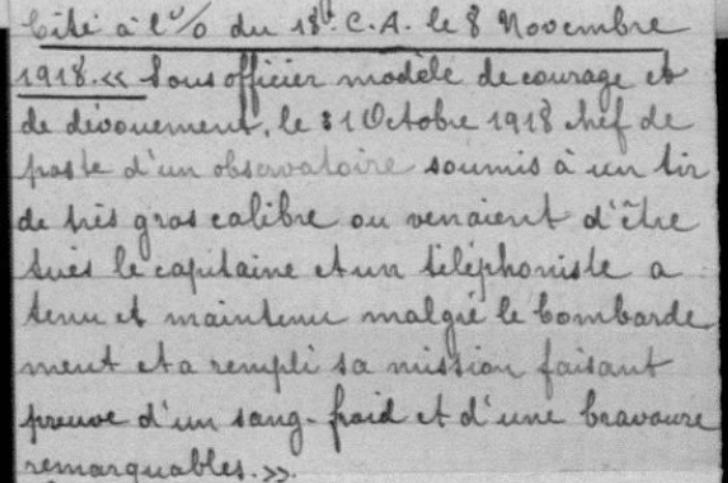 Cité à l'o/o du 18e C.A. le 8 Novembre
1918. << Sous officier modèle de courage et
de dévouement, le 31 Octobre 1918 chef de
poste d'un observatoire soumis à un tir
de très gros calibre ou venaient d'être
tués le capitaine et un téléphoniste a
tenu et maintenu malgré le bombarde
ment et a rempli sa mission faisant
preuve d'un sang-froid et d'une bravoure
remarquables. >>.